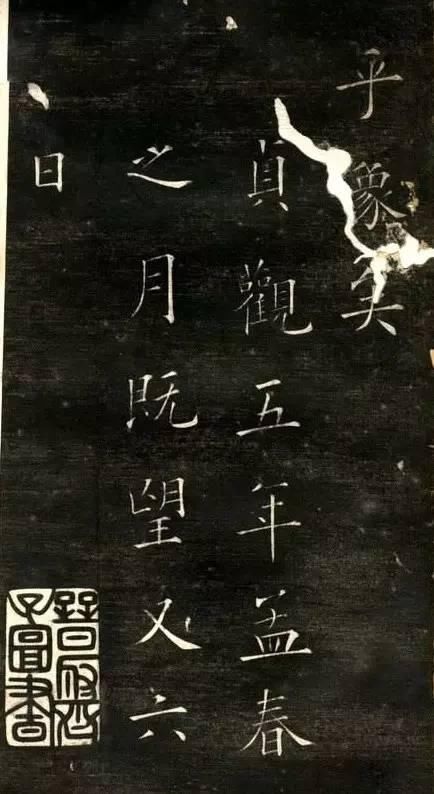 乎象矣
貞觀五年孟春
之月既望又六
日